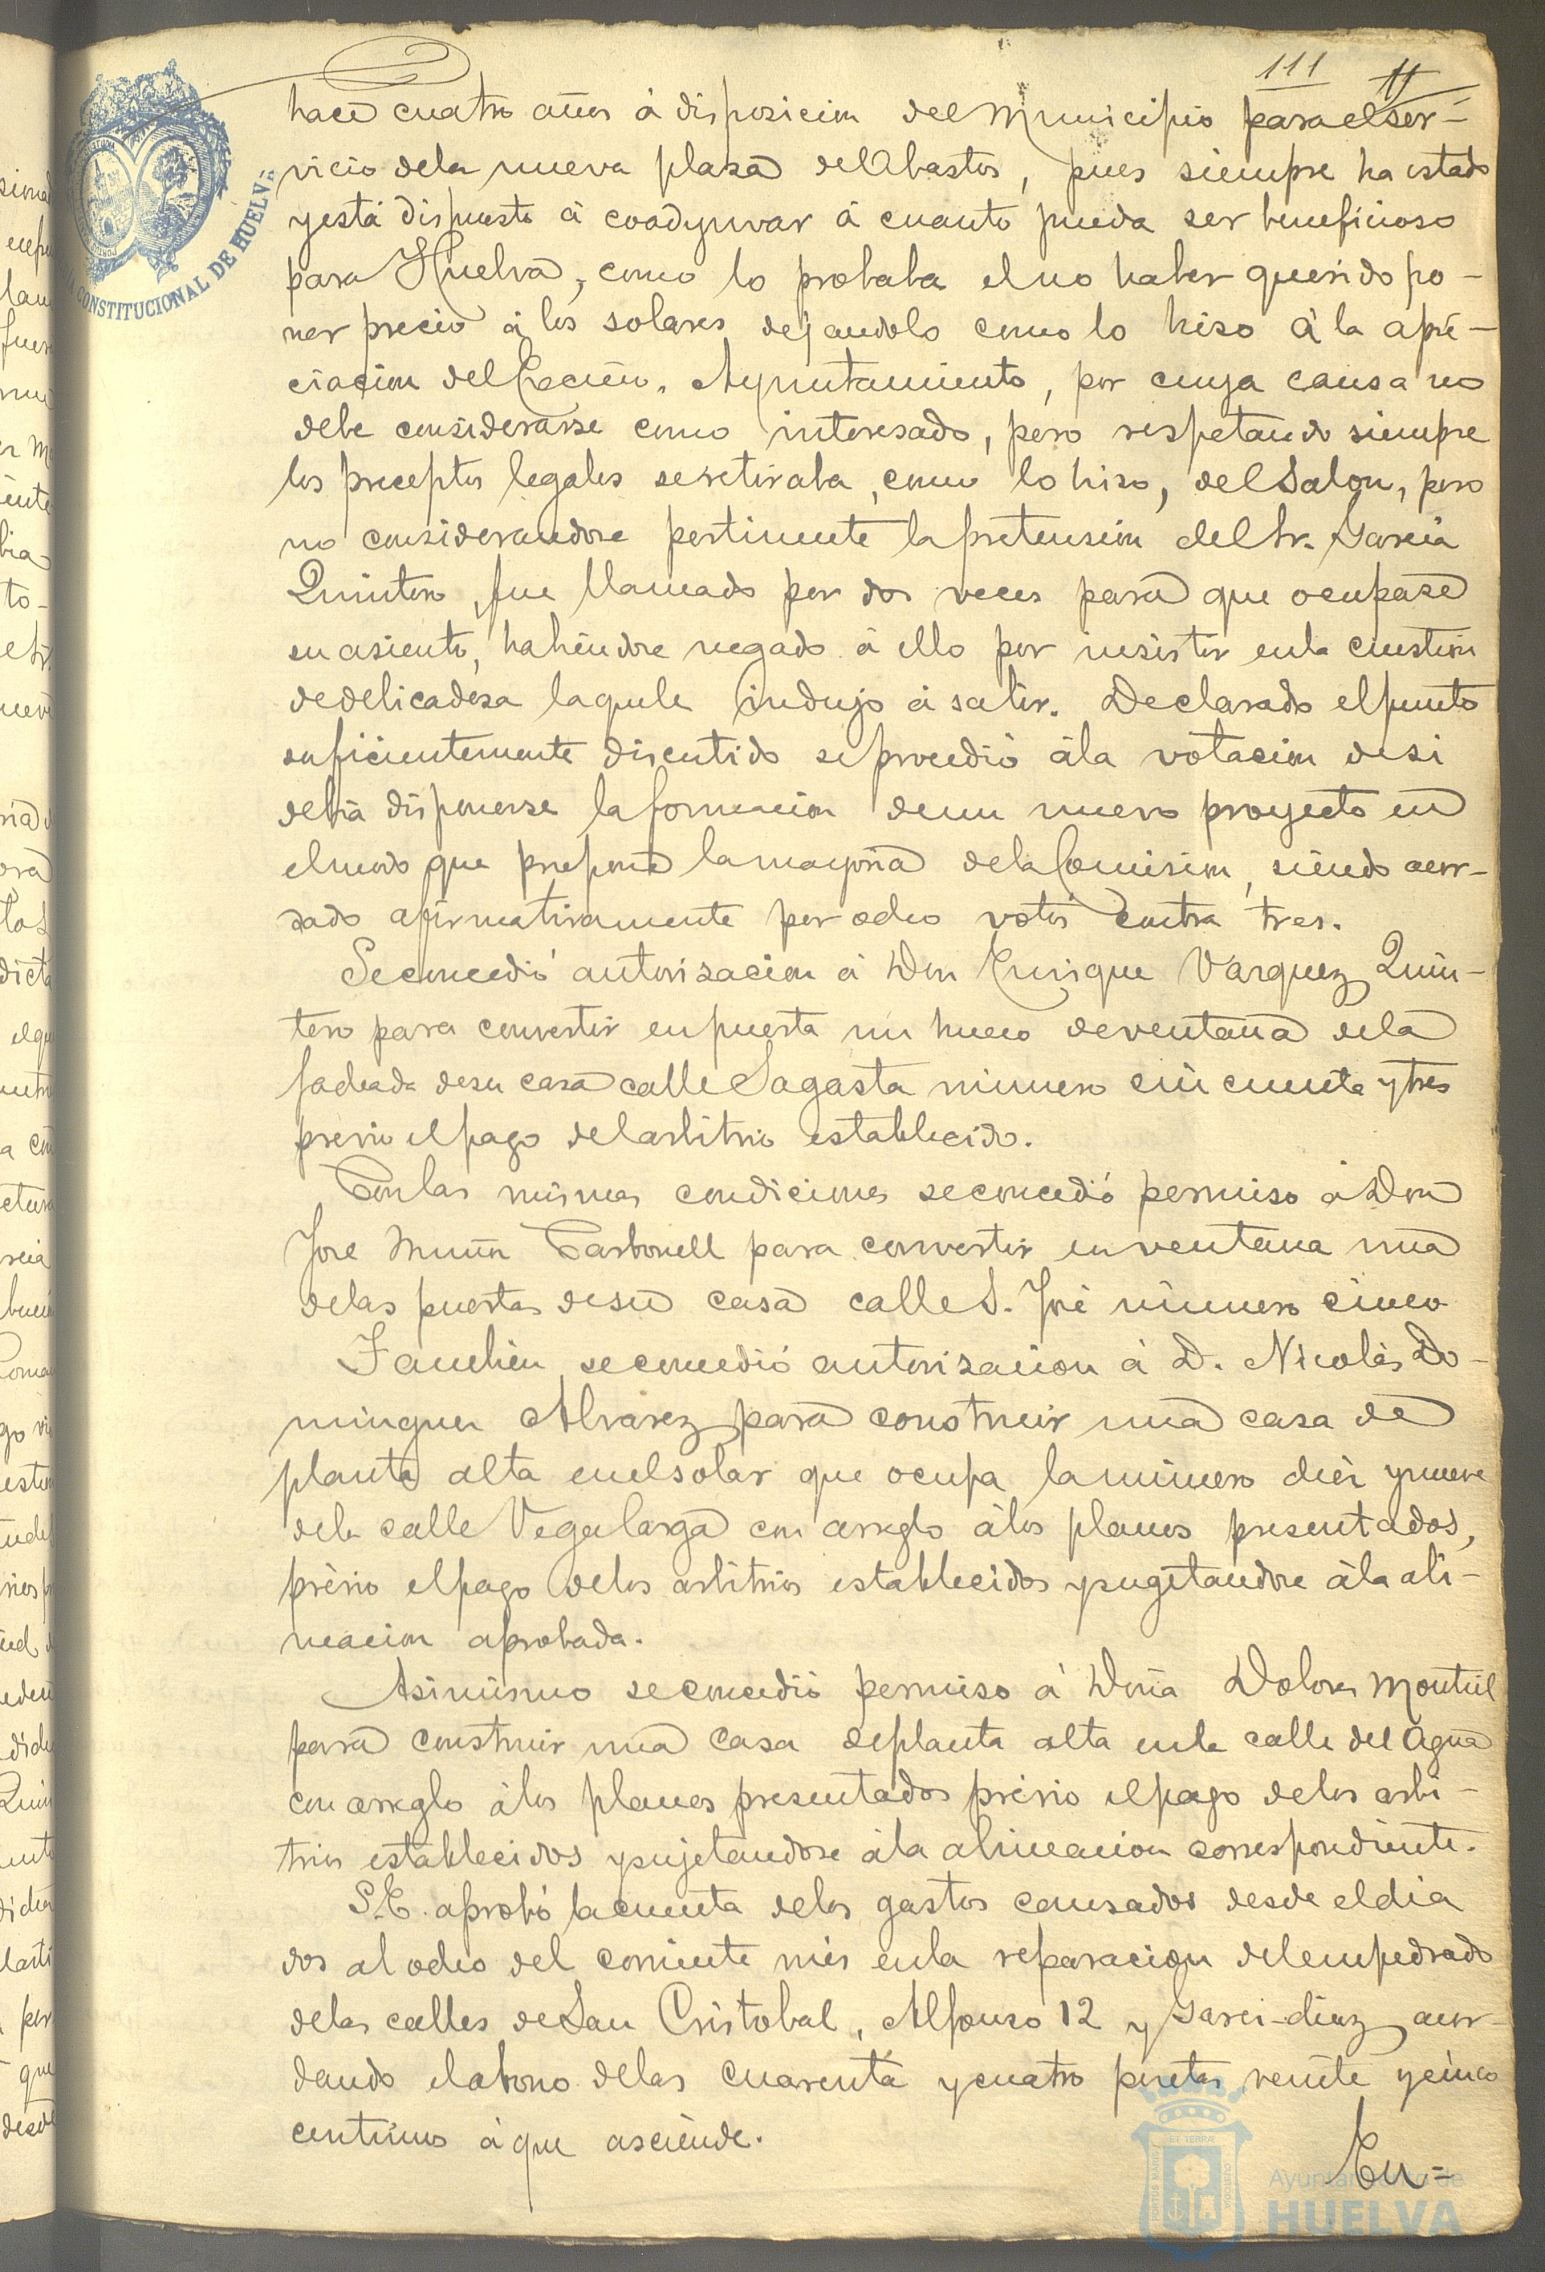 111 11
hace cuatro años á disposicion del Municipio para el ser-
vicio dela nueva plaza del Abastos, pues siempre ha estado
y está dispuesto á coadyuvar á cuanto pueda ser beneficioso
para Huelva, como lo probaba el no haber querido po-
ner precio á los solares dejandolo como lo hiso á la apre-
ciacion del Excmo. Ayuntamiento, por cuya causa no
debe considerarse como interesado, pero respetando siempre
los preceptos legales se retiraba, como lo hiso, del Salon, pero
no considerandose pertinente la pretension del Sr. Garcia
Quintero, fue llamado por dos veces para que ocupase
su asiento, habiendose negado á ello por insistir en la cuestion
de delicadesa la que le indujo á salir. Declarado el punto
suficientemente discutido se procedió á la votacion de si
debia disponerse la formacion de un nuevo proyecto en
el modo que propone la mayoria de la Comision, siendo acor-
dado afirmativamente por ocho votos contra tres.
Se concedió autorisacion á Don Enrique Vazquez Quin-
tero para convertir en puerta un hueco de ventana de la
fachada de su casa calle Sagasta número cincuenta y tres
previo el pago del arbitrio establecido.
Con las mismas condiciones se concedió permiso á Don
José Muñoz Carbonell para convertir en ventana una
de las puertas de su casa calle S. José número cinco
Tambien se concedió autorisacion á D. Nicolás Do-
minguez Alvarez para construir una casa de
planta alta en el solar que ocupa la número diez y nueve
de la calle Vega larga con arreglo á los planos presentados,
prévio el pago de los arbitrios establecidos y sugetandose á la ali-
neacion aprobada.
Asimismo se concedió permiso á Doña Dolores Montiel
para construir una casa de planta alta en la calle del Agua
con arreglo á los planos presentados prévio el pago de los arbi-
trios establecidos y sujetandose á la alineacion correspondiente.
S.E. aprobó la cuenta de los gastos causados desde el dia
dos al ocho del corriente mes en la reparacion del empedrado
de las calles de San Cristobal, Alfonso 12 y Garci-diaz acor-
dando el abono de las cuarenta y cuatro pesetas veinte y cinco
centimos á que asciende.
En=
CONSTITUCIONAL DE HUELVA
Ayuntamiento de
HUELVA